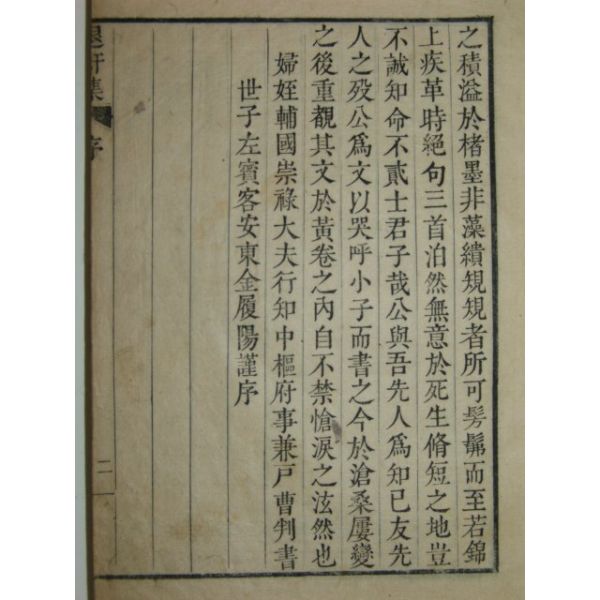 之積溢於楮墨非藻繢規規者所可髣髴而至若錦
上疾革時絕句三首泊然無意於死生脩短之地豈
不誠知命不貳士君子哉公與吾先人爲知已友先
人之歿公爲文以哭呼小子而書之今於滄桑屢變
之後重覩其文於黃卷之內自不禁愴淚之泫然也
婦姪輔國崇祿大夫行知中樞府事兼戶曹判書
世子左賓客安東金履陽謹序
軒集
序
二